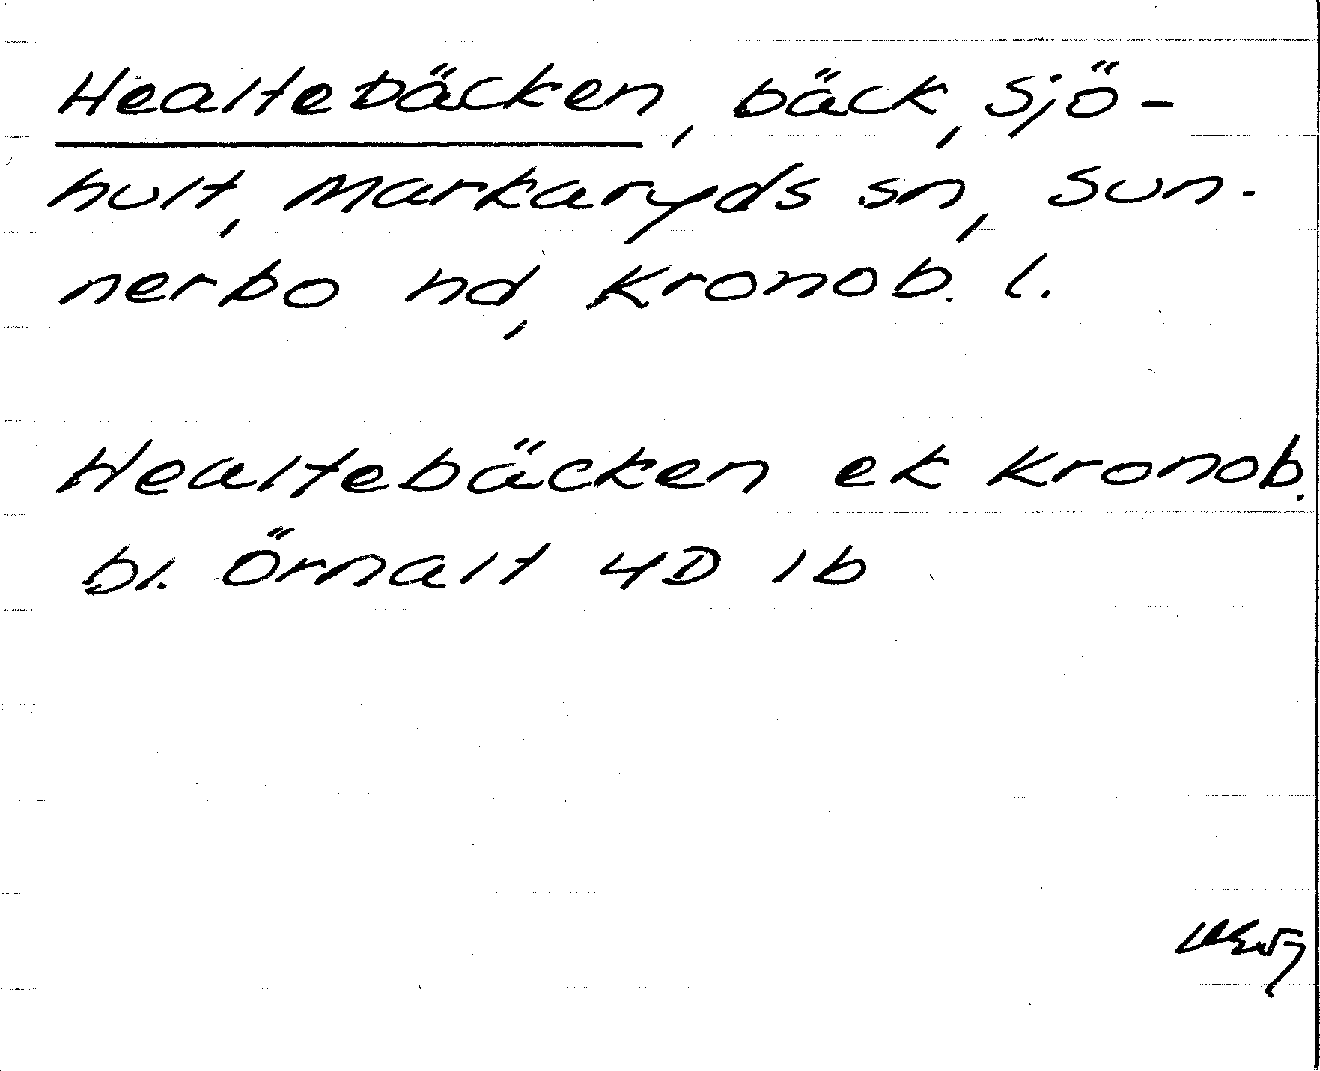 Healtebäcken, bäck, Sjö-
hult, Markaryds sn, Sun-
nerbo hd, Kronob. l.
Healtebäcken ek Kronob.
bl. Örnalt 4D 1b